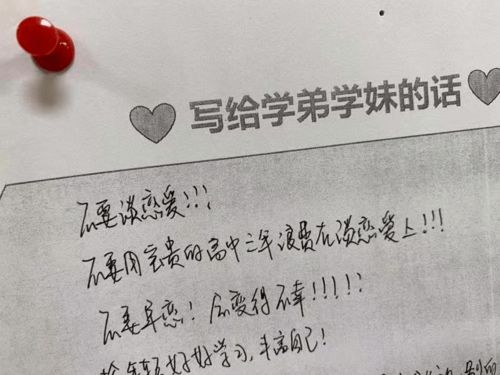 写给学弟学妹的话
不要谈恋爱!!!
不要用宝贵的高中三年浪费在谈恋爱上!!!
不要早恋! 会变得不幸!!!!!
好好学习,丰富自己!